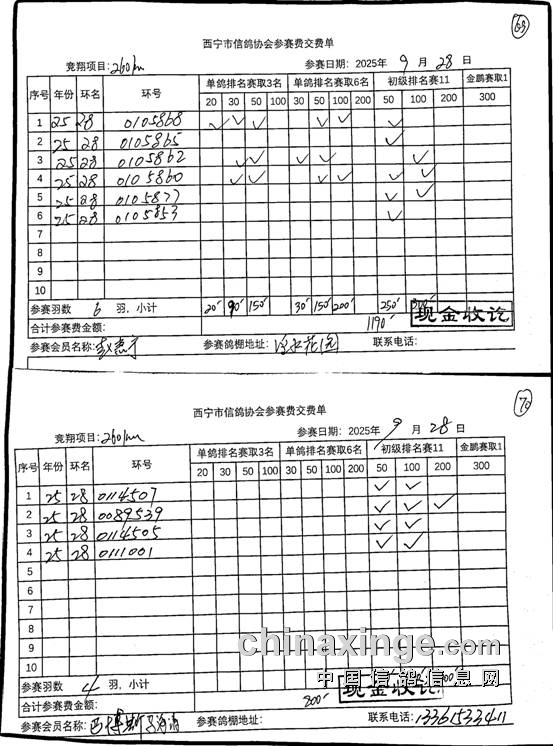 69
西宁市信鸽协会参赛费交费单
竞翔项目：260km 参赛日期：2025年 9 月 28 日
序号 年份 环名 环号 单鸽排名赛取3名 单鸽排名赛取6名 初级排名赛11 金鹏赛取1
20 30 50 100 30 50 100 200 50 100 200 300
1 25 28 0105868 ✓ ✓ ✓ ✓ ✓ ✓
2 25 28 0105865 ✓
3 25 28 0105862 ✓ ✓ ✓ ✓ ✓
4 25 28 0105860 ✓ ✓ ✓ ✓ ✓ ✓
5 25 28 0105877 ✓ ✓
6 25 28 0105853 ✓
7
8
9
10
参赛羽数 6 羽，小计 20 90 150 30 150 200 250
合计参赛费金额： 1190 现金收讫
参赛会员名称： 参赛鸽棚地址： 联系电话：
70
西宁市信鸽协会参赛费交费单
竞翔项目：260km 参赛日期：2025年 9 月 28 日
序号 年份 环名 环号 单鸽排名赛取3名 单鸽排名赛取6名 初级排名赛11 金鹏赛取1
20 30 50 100 30 50 100 200 50 100 200 300
1 25 28 0114507 ✓ ✓
2 25 28 0089539 ✓ ✓ ✓
3 25 28 0114505 ✓ ✓
4 25 28 0111001 ✓ ✓
5
6
7
8
9
10
chinaxinge.com
中国信鸽信息网
参赛羽数 4 羽，小计
合计参赛费金额： 800 现金收讫
参赛会员名称： 参赛鸽棚地址： 联系电话：13361533411